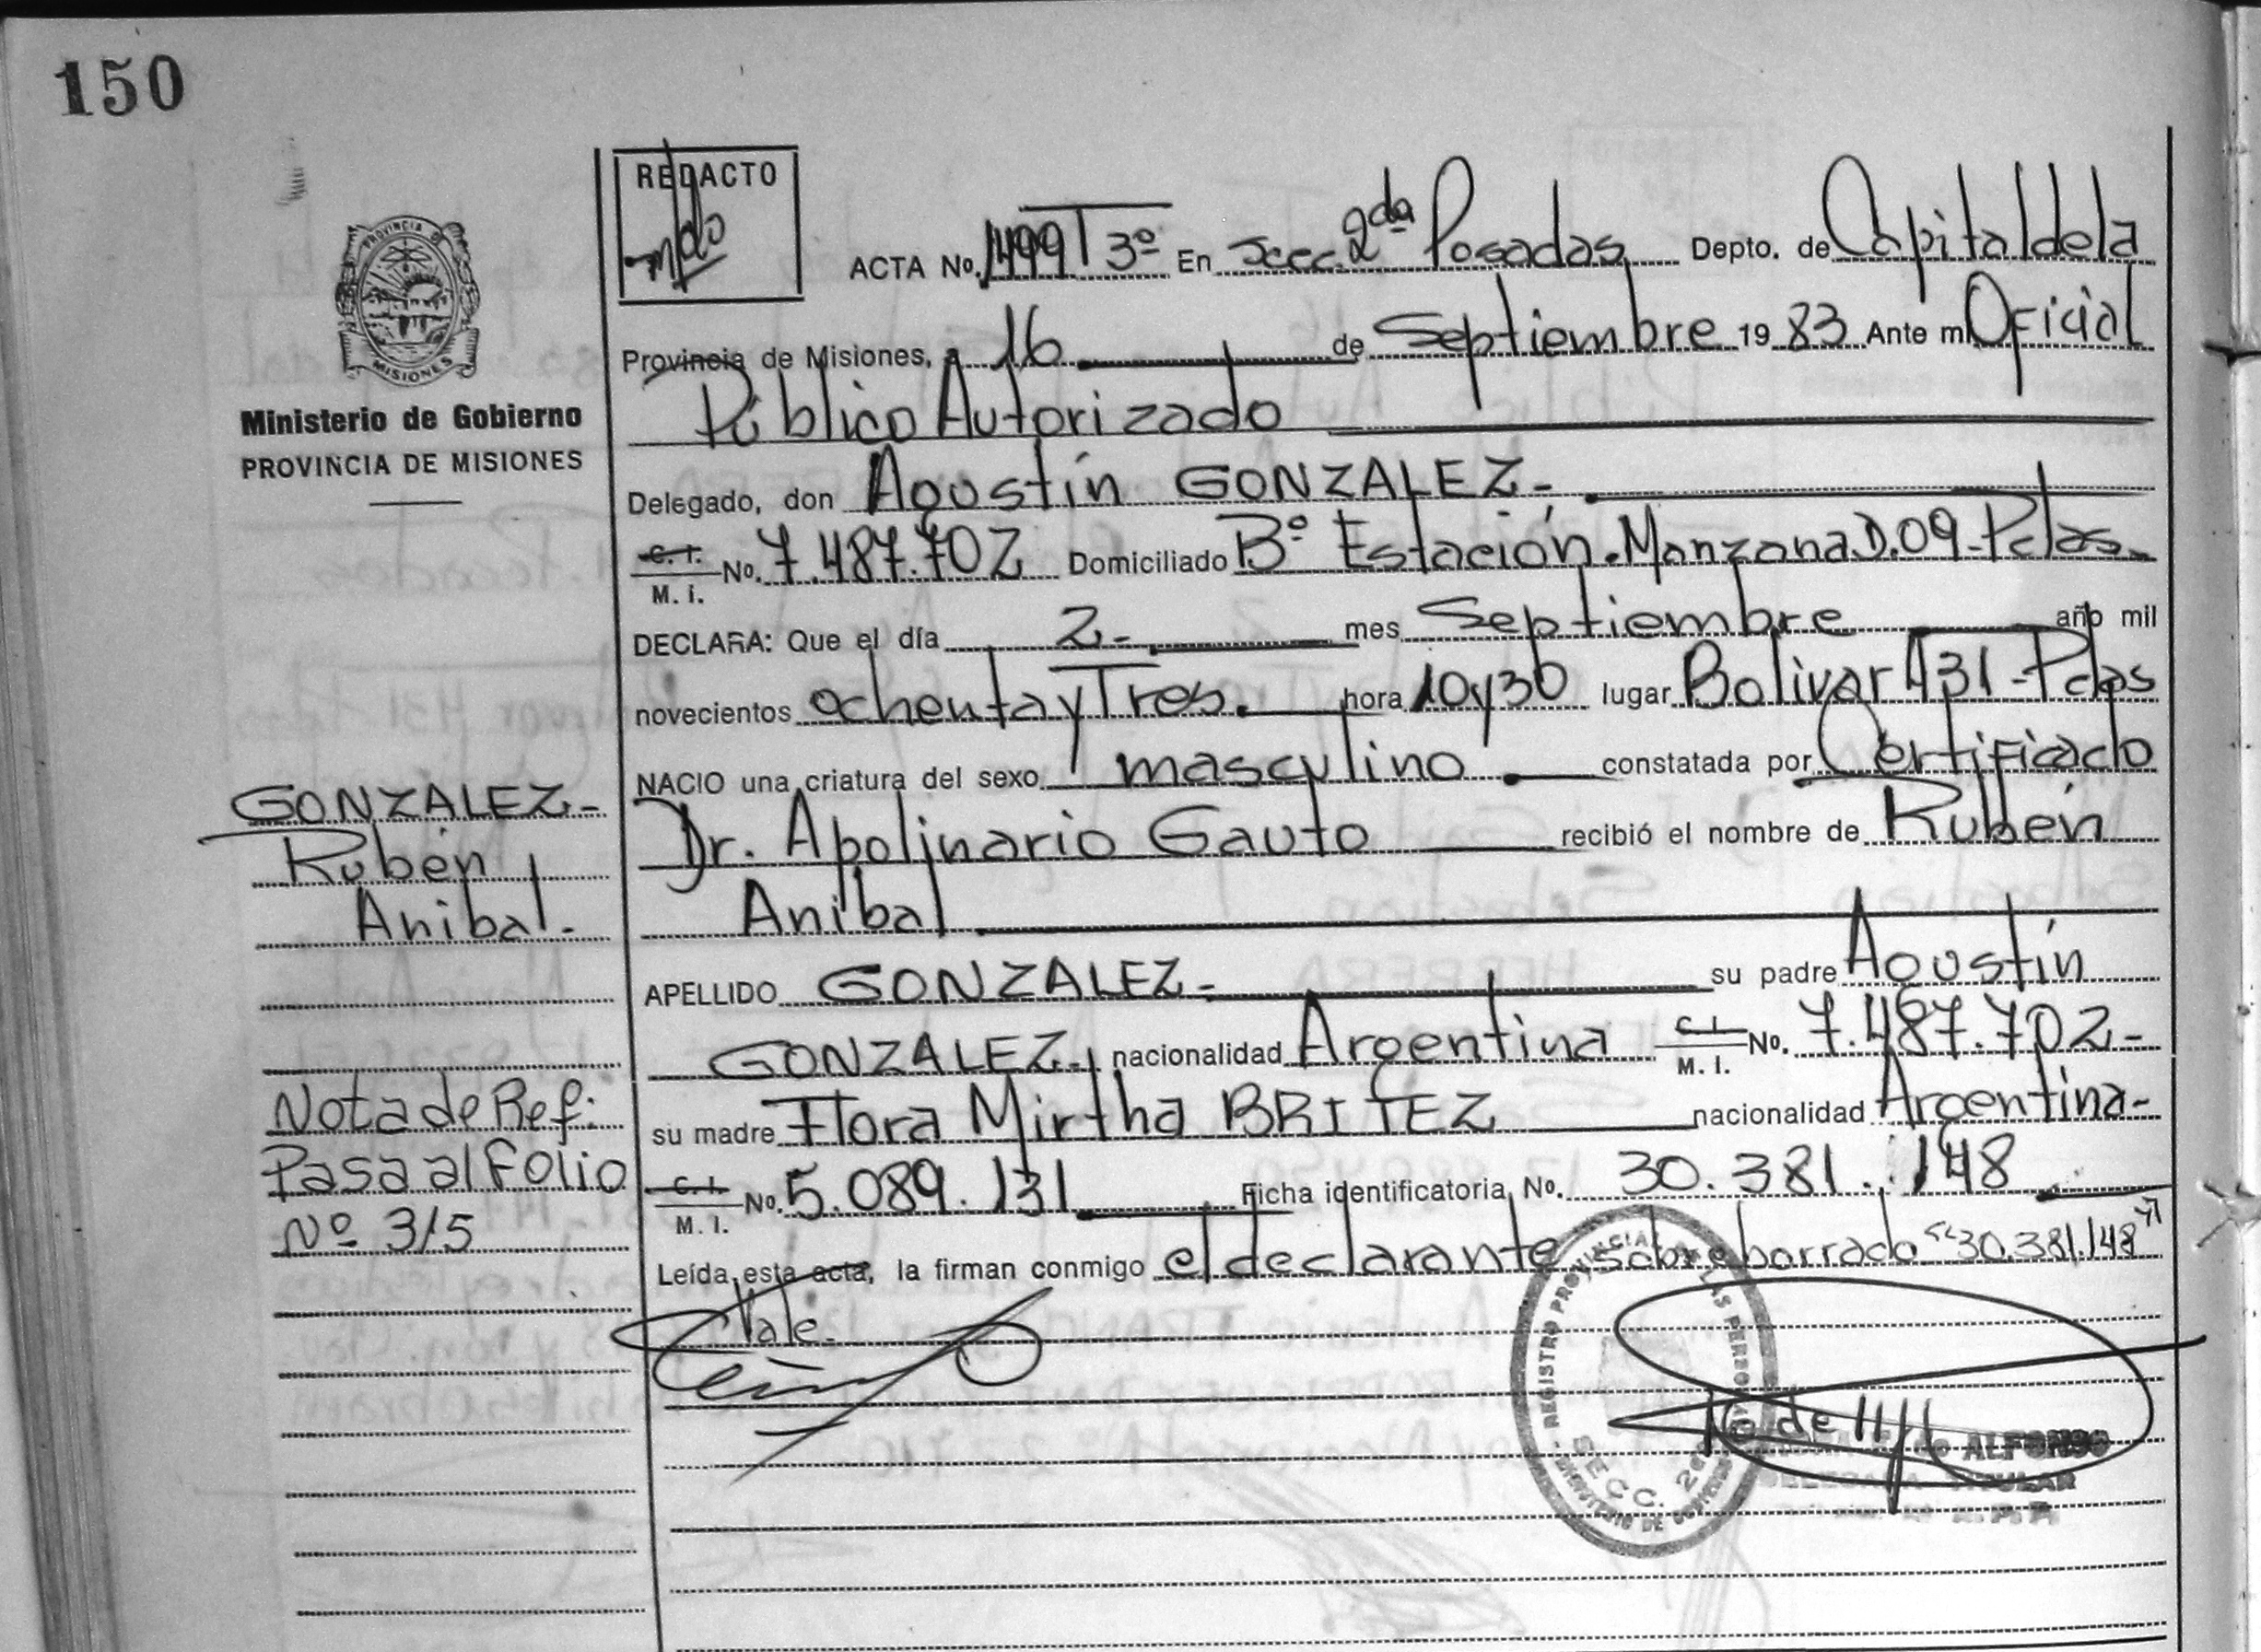 150
REDACTO
ACTA No. 1499 T 3º En Secc. 2da Posadas Depto. de Capital de la
Provincia de Misiones, a 16 de Septiembre 19 83 Ante mi Oficial
Público Autorizado
PROVINCIA DE
MISIONES
Ministerio de Gobierno
PROVINCIA DE MISIONES
Delegado, don Agustín GONZALEZ-
C. I. No. 7.487.702 Domiciliado Bº Estación-Manzana D.09-Pdas-
M. i.
DECLARA: Que el día 2- mes Septiembre año mil
novecientos ochenta y Tres. hora 10y30 lugar Bolivar 431-Pdas
NACIO una criatura del sexo masculino constatada por Certificado
Dr. Apolinario Gauto recibió el nombre de Rubén
Anibal
GONZALEZ-
Rubén
Anibal.
APELLIDO GONZALEZ- su padre Agustín
GONZALEZ- nacionalidad Argentina C. I. No. 7.487.702-
M. I.
su madre Flora Mirtha BRITEZ nacionalidad Argentina-
C. I. No. 5.089.131 Ficha identificatoria No. 30.381.148
M. I.
Nota de Ref:
Pasa al Folio
Nº 315
Leída esta acta, la firman conmigo el declarante sobreborrado "30.381.148"
Vale.
REGISTRO PROVINCIAL DE LAS PERSONAS
SECC. 2da
MINISTERIO DE GOBIERNO
ALFONSO
DELEGADA TITULAR